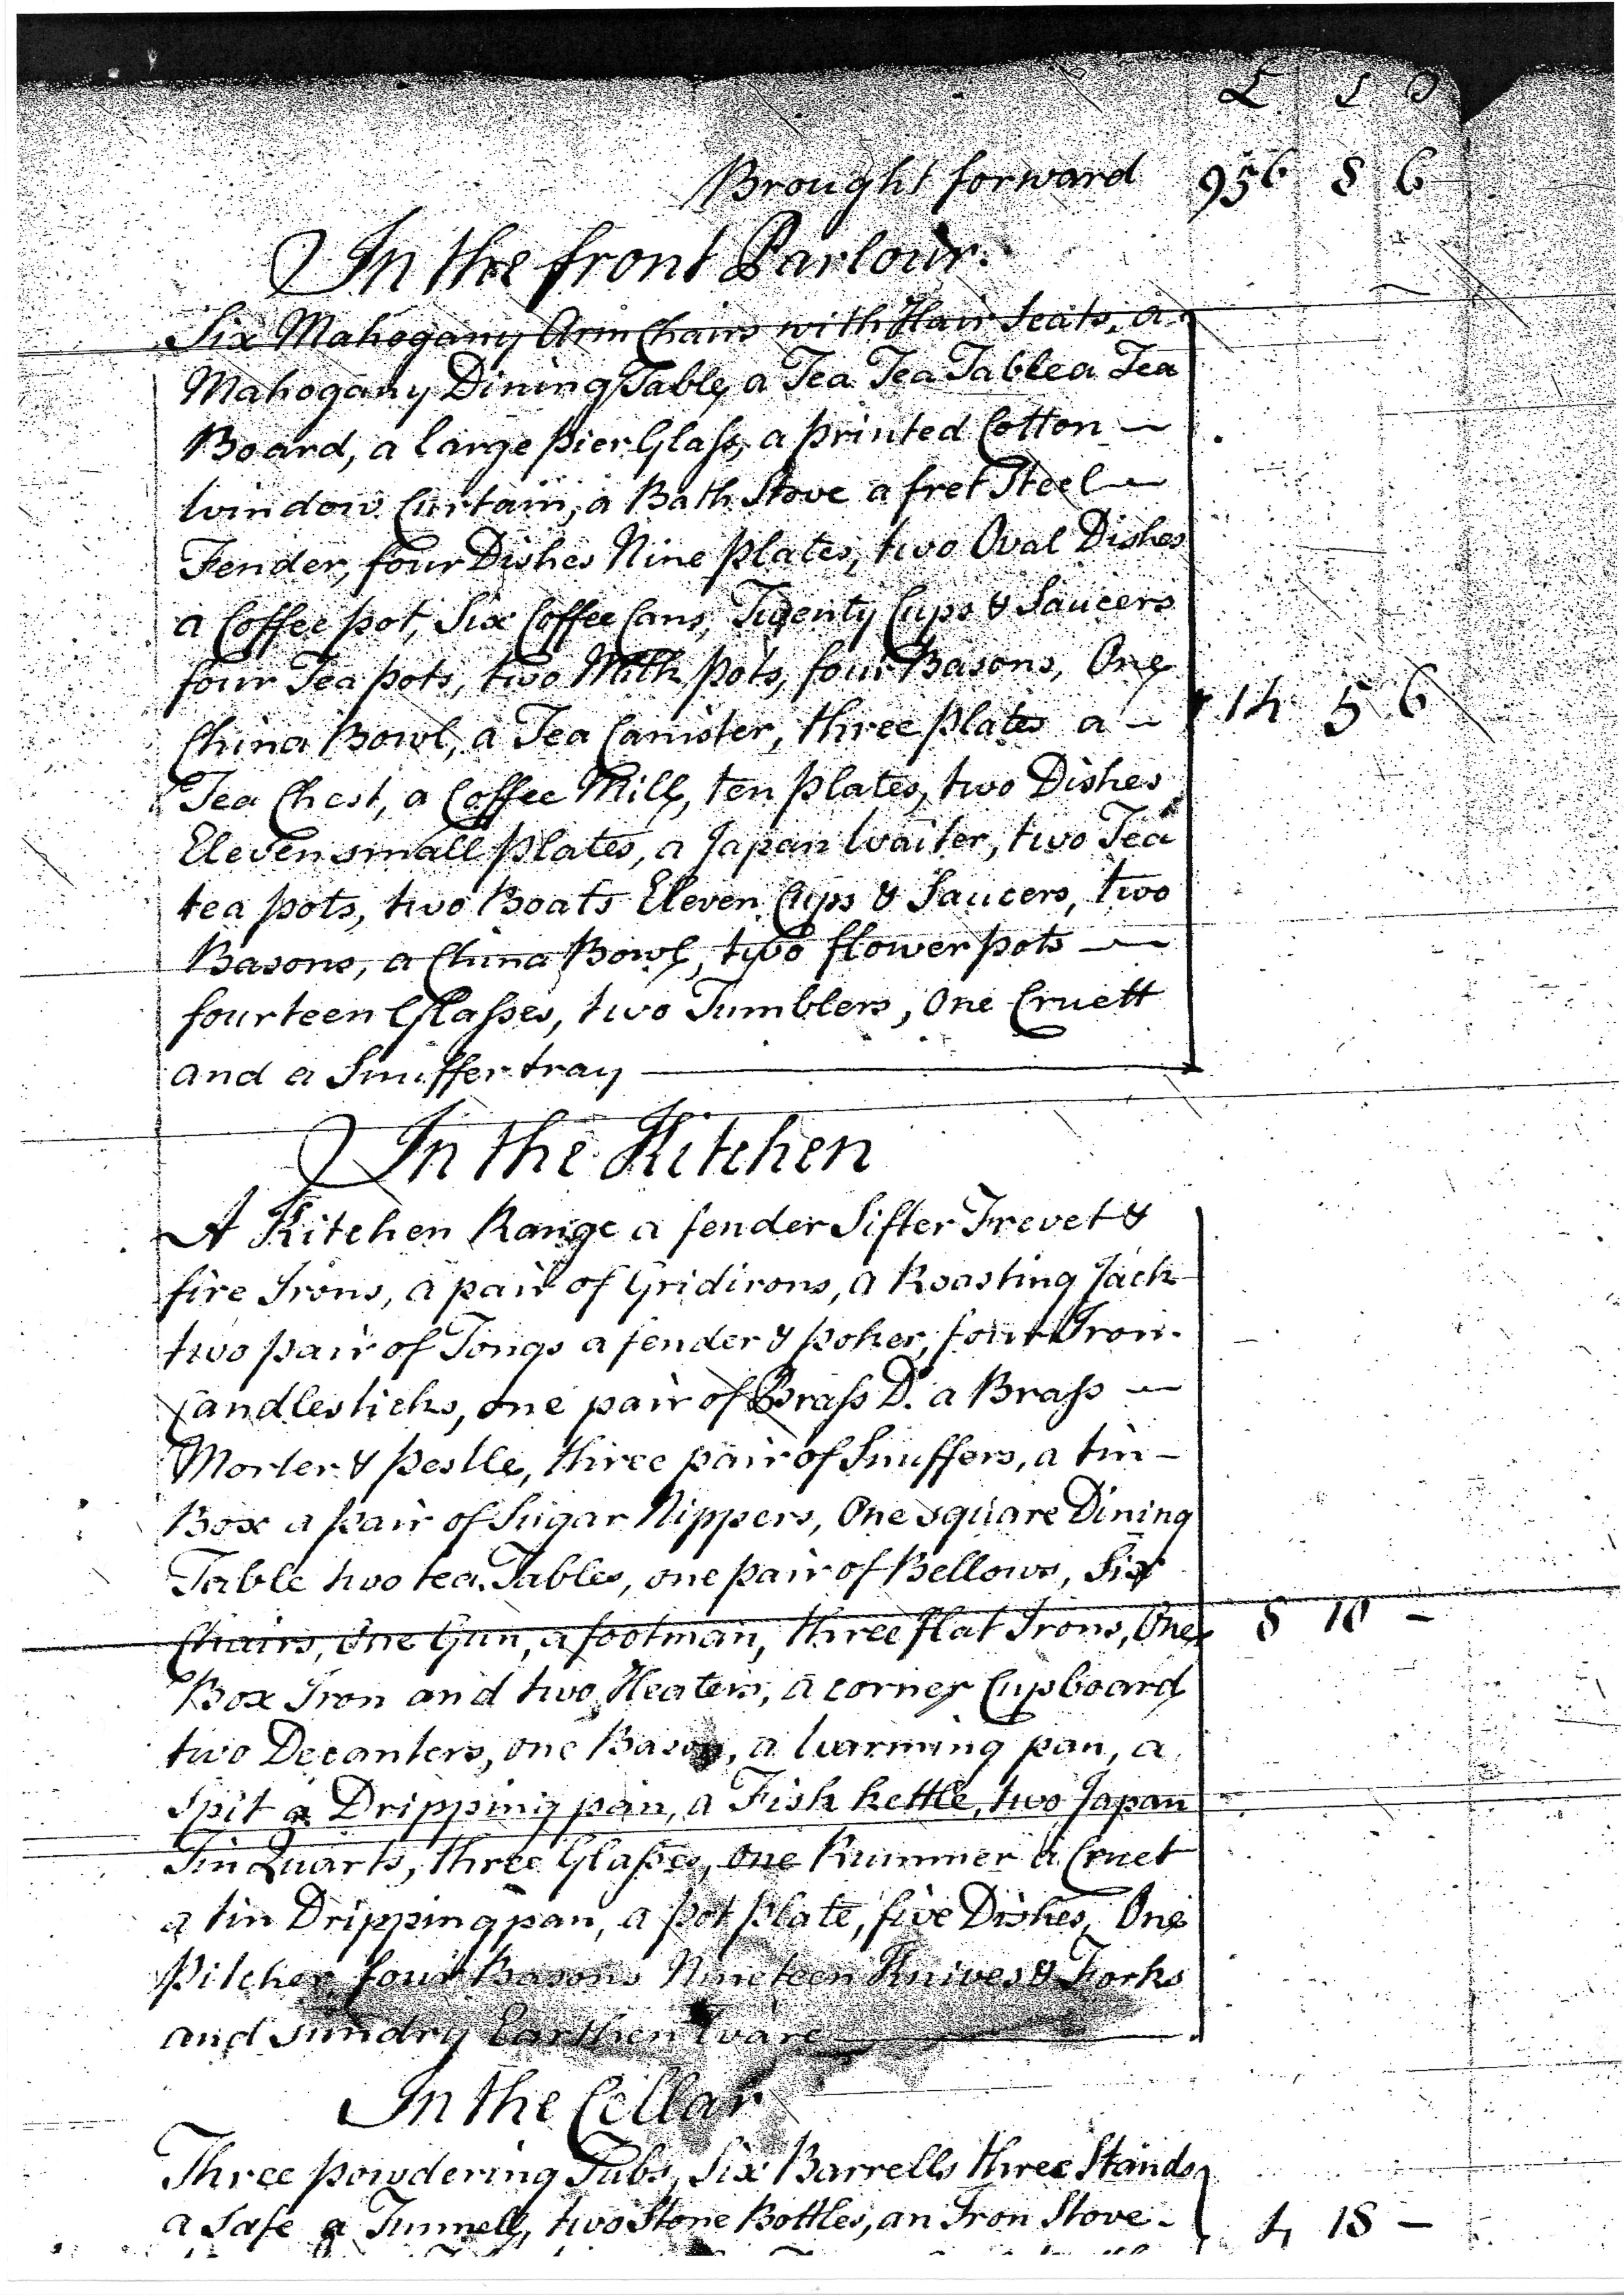 £ S D
Brought forward 956 8 6
In the front Parlour.
Six Mahogany Arm Chairs with Hair Seats, a
Mahogany Dining Table, a Tea Tea Table a Tea
Board, a large pier Glass, a printed Cotton —
window Curtain, a Bath Stove a fret Steel —
Fender, four Dishes Nine plates, two Oval Dishes
a Coffee pot, Six Coffee Cans, Twenty Cups & Saucers
four Tea pots, two Milk pots, four Basons, One
China Bowl, a Tea Canister, three plates a — 14 5 6
Tea Chest, a Coffee Mill, ten plates, two Dishes
Eleven small plates, a Japan waiter, two Tea
tea pots, two Boats Eleven Cups & Saucers, two
Basons, a China Bowl, two flower pots —
fourteen Glasses, two Tumblers, One Cruett
and a Snuffer tray
In the Kitchen
A Kitchen Range a fender Sifter Trevet &
fire Irons, a pair of Gridirons, a Roasting Jack
two pair of Tongs a fender & poker, four Iron
Candlesticks, one pair of Brass Do. a Brass —
Morter & pestle, three pair of Snuffers, a tin —
Box a pair of Sugar Nippers, One square Dining
Table two tea Tables, one pair of Bellows, Six
Chairs, One Gun, a footman, three flat Irons, One 8 10 —
Box Iron and two Heaters, a corner Cupboard
two Decanters, one Bason, a warming pan, a
Spit a Dripping pan, a Fish kettle, two Japan
Tin Quarts, three Glasses, one Rummer a Cruet
a tin Dripping pan, a pot plate, five Dishes, One
Pitcher four Basons Nineteen Knives & Forks
and sundry Earthen Ware
In the Cellar
Three powdering Tubs, Six Barrells three Stands
a Safe a Tunnell, two Stone Bottles, an Iron Stove — 4 18 —